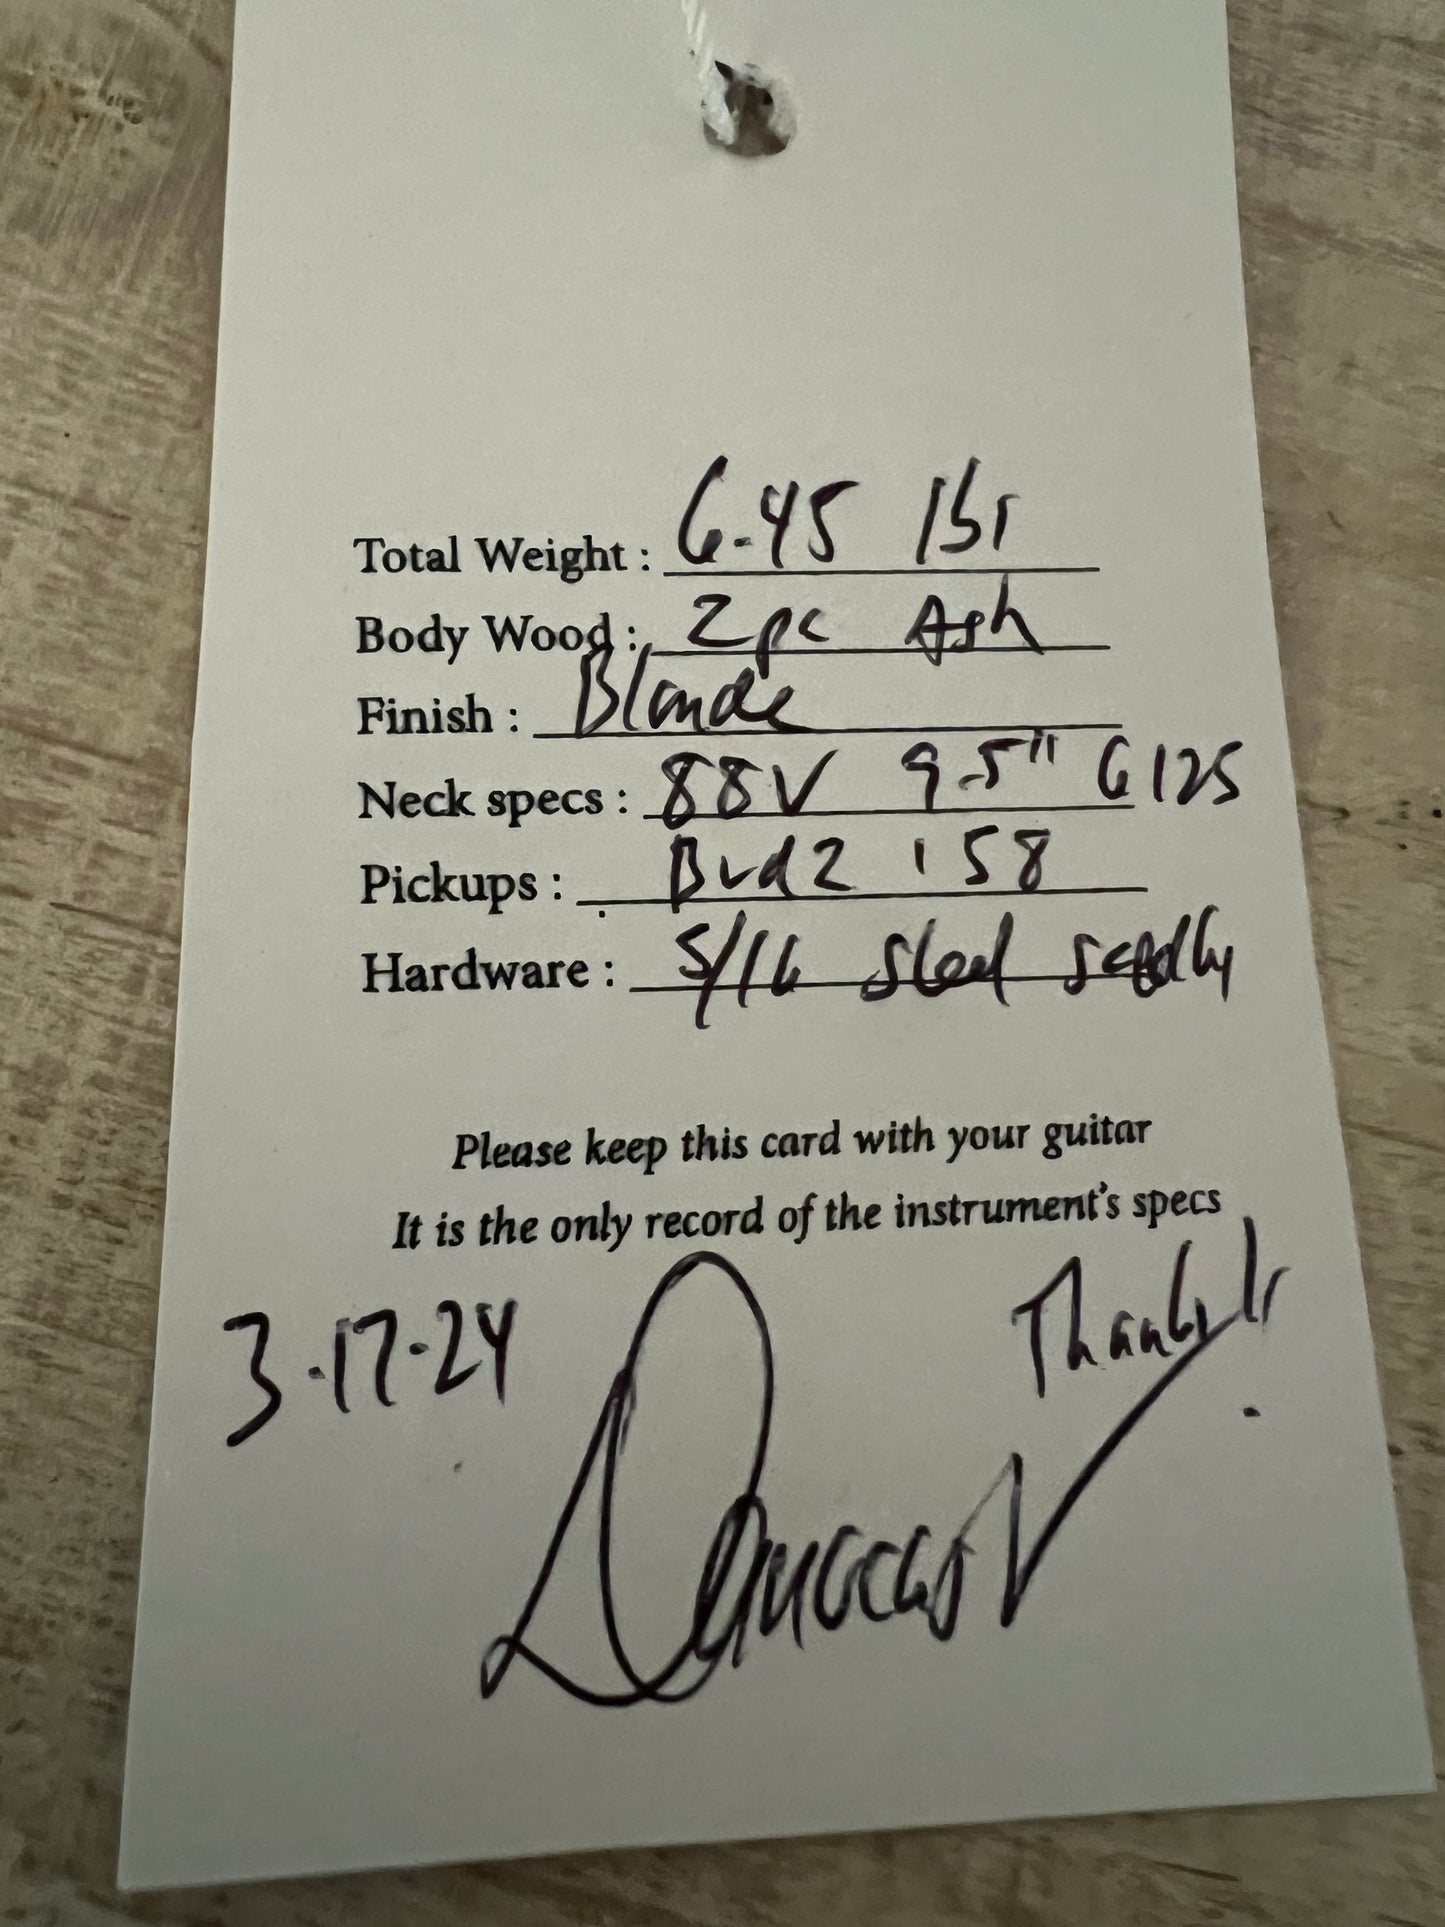 Total Weight : 6.45 lbs
Body Wood : 2pc Ash
Finish : Blonde
Neck specs : 88V 9.5" 6125
Pickups : Bvd2 '58
Hardware : 5/16 steel
Please keep this card with your guitar
It is the only record of the instrument's specs
3.17.24
Thanks!